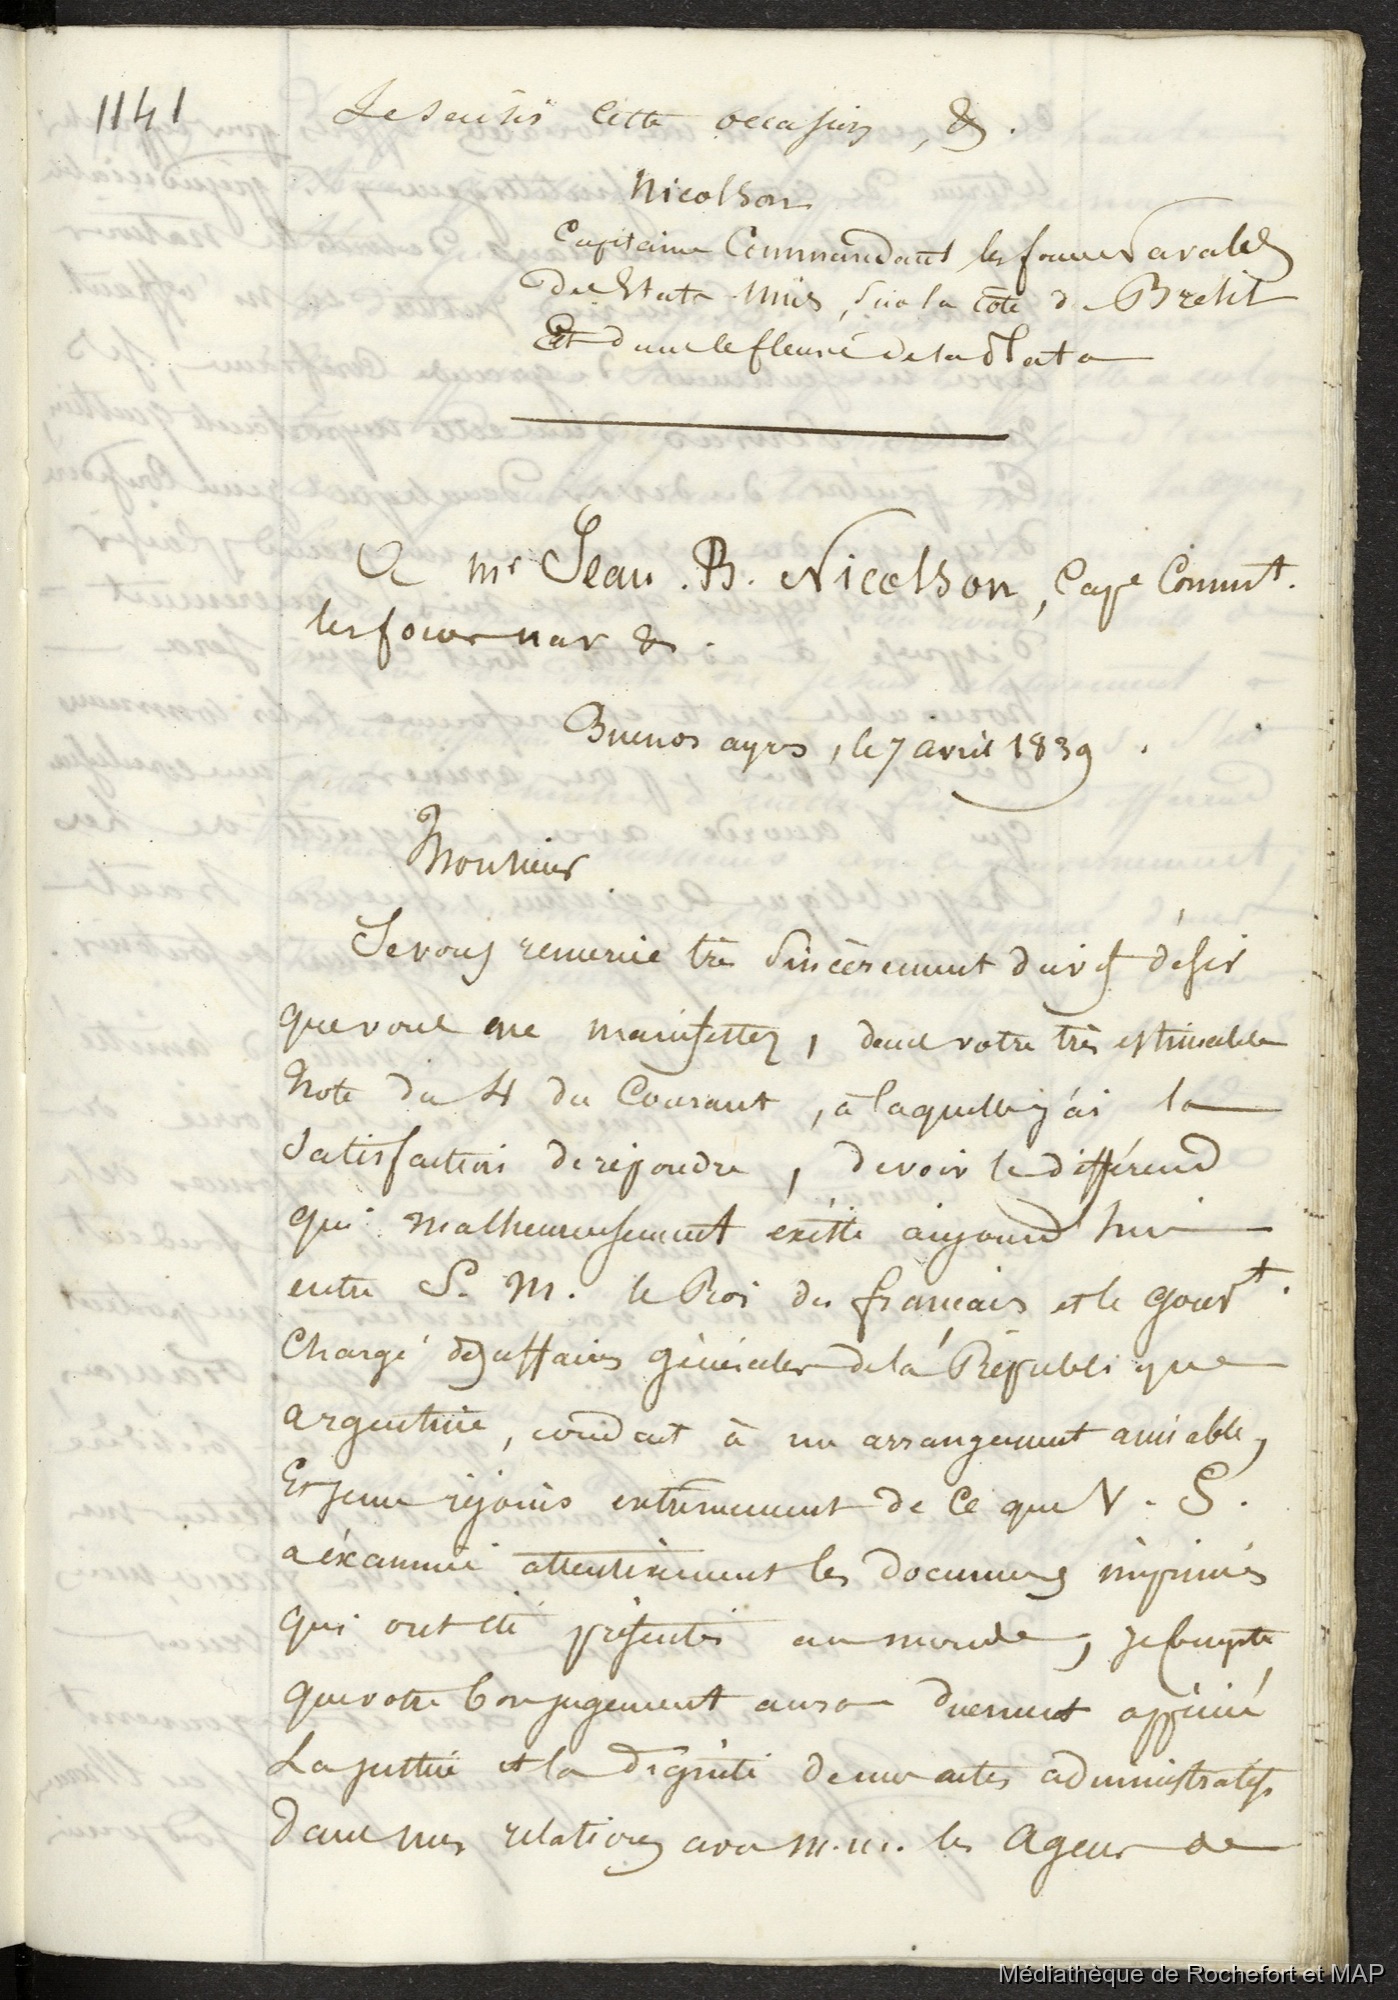 1141
Je saisis cette occasion, &.
Nicolson
Capitaine Commandant les forces Navales
des Etats-Unis, sur la côte du Brésil
Et dans le fleuve de la Plata
A mr Jean. B. Nicolson, Cape Commt.
les forces nav &.
Buenos ayres, le 7 avril 1839.
Monsieur
Je vous remercie très sincèrement du vif désir
que vous me manifestez, dans votre très estimable
Note du 4 du Courant, à laquelle j'ai la
satisfaction de répondre, de voir le différend
qui malheureusement existe aujourd'hui
entre S. M. le Roi des français et le Gouvt.
Chargé des affaires générales de la République
argentine, conduit à un arrangement amiable,
Et je me réjouis extrêmement de ce que V. S.
a éxaminé attentivement les documens imprimés
qui ont été présentés au monde, je compte
que votre bon jugement aura dûement apprécié
La justice et la dignité de mes actes administratifs
dans mes relations avec M.M. les Agens de
Médiathèque de Rochefort et MAP